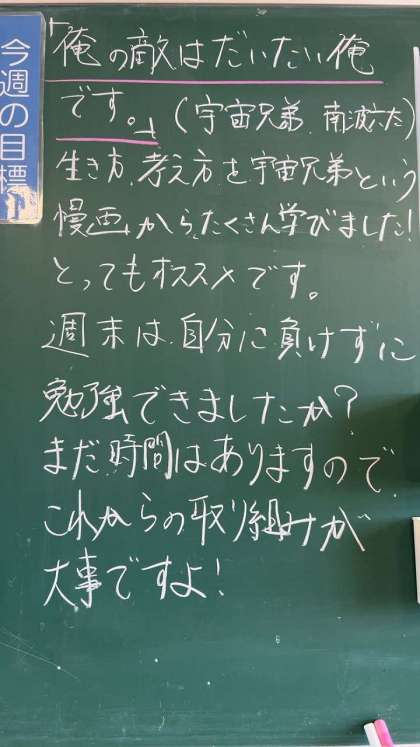 今週の目標
「俺の敵はだいたい俺
です。」(宇宙兄弟 南波六太)
生き方、考え方を宇宙兄弟という
慢画からたくさん学びました!
とってもオススメです。
週末は自分に負けずに
勉強できましたか?
まだ時間はありますので
これからの取り組みが
大事ですよ!